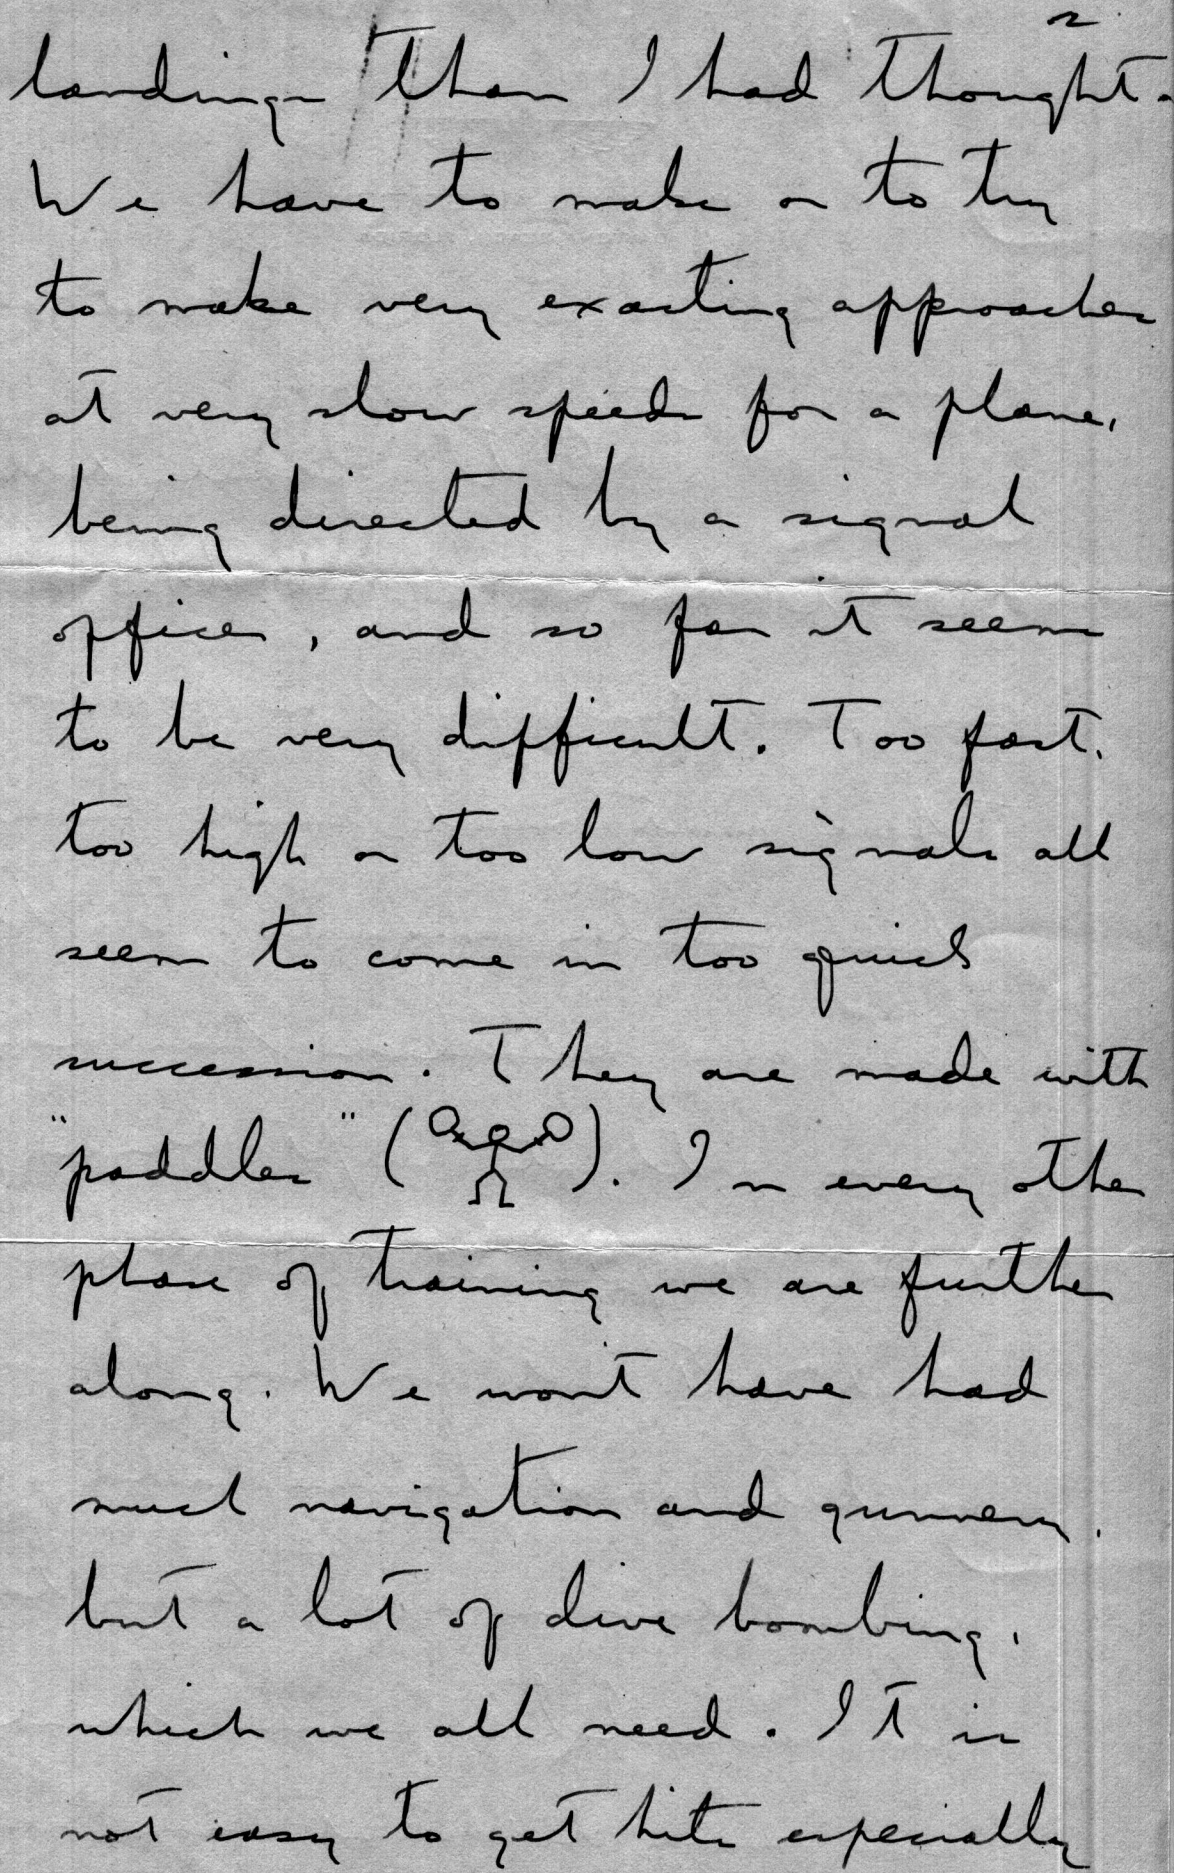 2
landings than I had thought.
We have to make or to try
to make very exacting approaches
at very slow speeds for a plane,
being directed by a signal
officer, and so far it seems
to be very difficult. Too fast,
too high or too low signals all
seem to come in too quick
succession. They are made with
"paddles" ( ). In every other
phase of training we are further
along. We won't have had
much navigation and gunnery,
but a lot of dive bombing,
which we all need. It is
not easy to get hits especially